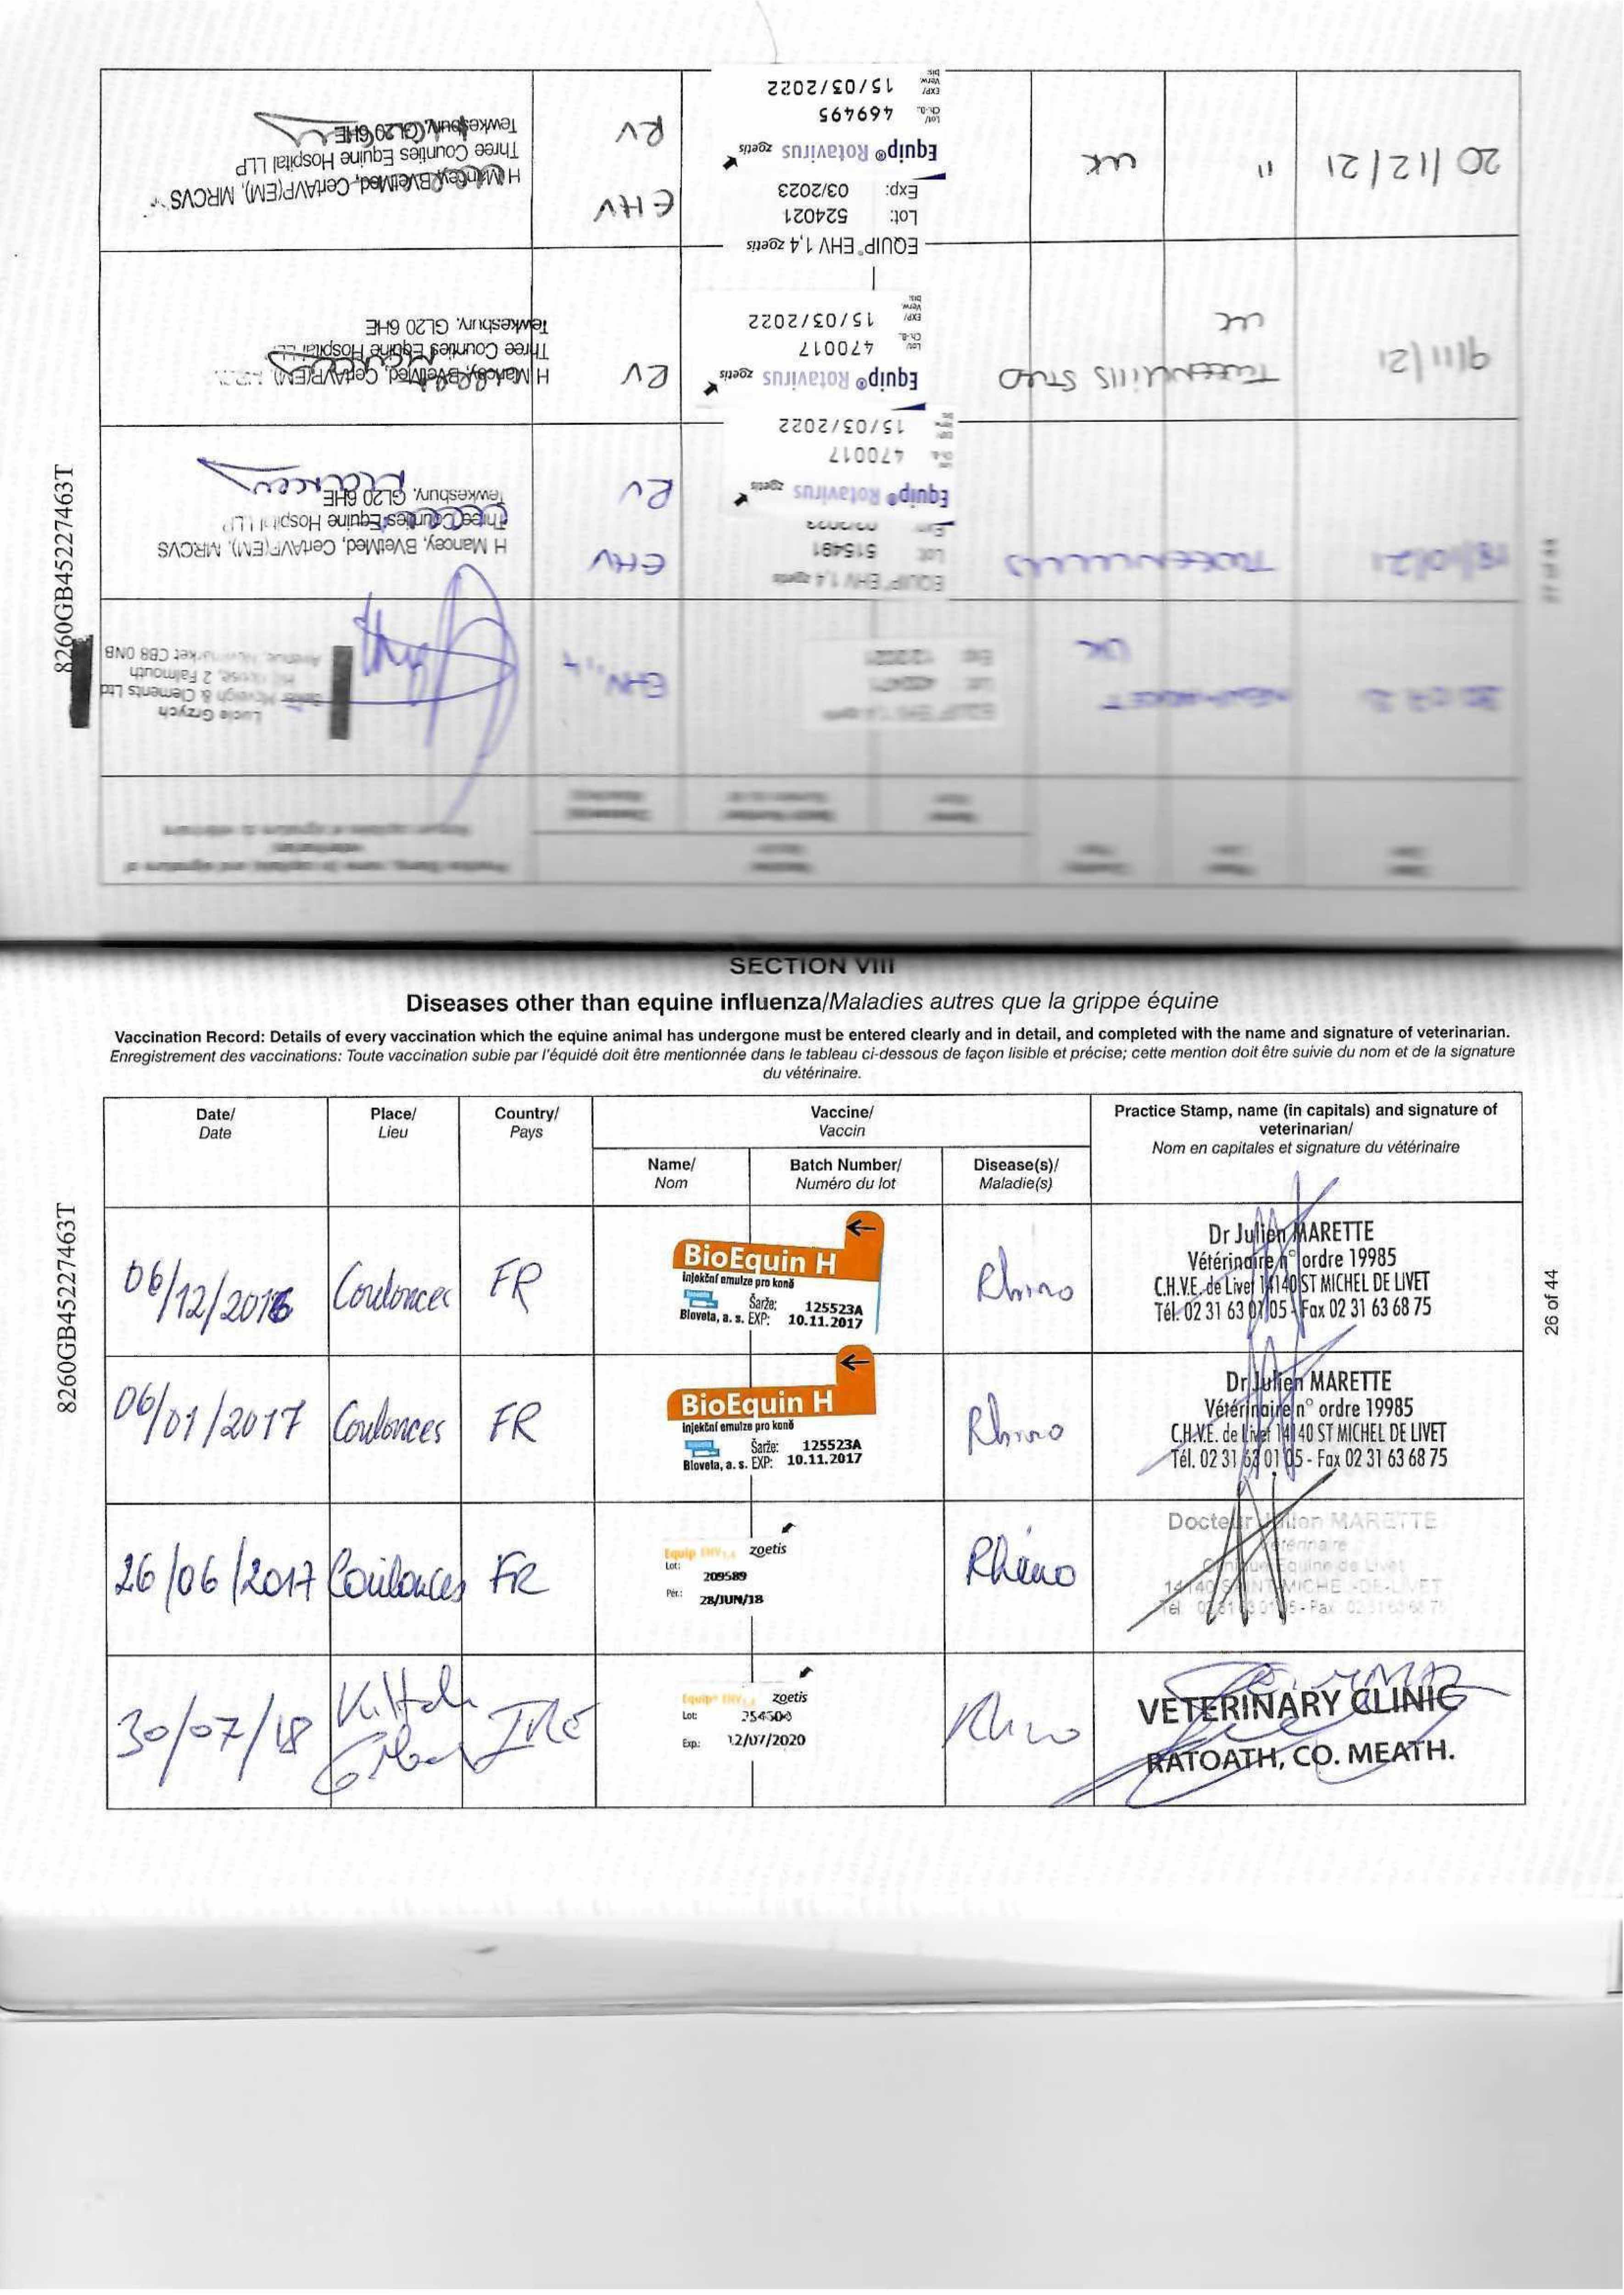 8260GB45227463T
20/12/21 " UK
EQUIP® EHV 1,4 zoetis
Lot: 524021
Exp: 03/2023
EHV
Equip® Rotavirus zoetis
Lot/ Ch.-B. 469495
EXP/ Verw. bis: 15/03/2022
RV
H Mancey, BVetMed, CertAVP(EM), MRCVS
Three Counties Equine Hospital LLP
Tewkesbury, GL20 6HE
9/11/21 UK
Equip® Rotavirus zoetis
Lot/ Ch.-B. 470017
EXP/ Verw. bis: 15/03/2022
RV
H Mancey, BVetMed, CertAVP(EM),
Three Counties Equine Hospital
Tewkesbury, GL20 6HE
18/10/21
EQUIP® EHV 1,4 zoetis
Lot: 515491
EHV
Equip® Rotavirus zoetis
470017
15/03/2022
RV
H Mancey, BVetMed, CertAVP(EM), MRCVS
Three Counties Equine Hospital LLP
Tewkesbury, GL20 6HE
NEWMARKET UK
EQUIP® EHV 1,4 zoetis
EHV 1,4
Lucie Grzych
& Clements Ltd
House, 2 Falmouth
Avenue, Newmarket CB8 0NB
SECTION VIII
Diseases other than equine influenza/Maladies autres que la grippe équine
Vaccination Record: Details of every vaccination which the equine animal has undergone must be entered clearly and in detail, and completed with the name and signature of veterinarian.
Enregistrement des vaccinations: Toute vaccination subie par l'équidé doit être mentionnée dans le tableau ci-dessous de façon lisible et précise; cette mention doit être suivie du nom et de la signature
du vétérinaire.
Date/ Date
Place/ Lieu
Country/ Pays
Vaccine/ Vaccin
Name/ Nom
Batch Number/ Numéro du lot
Disease(s)/ Maladie(s)
Practice Stamp, name (in capitals) and signature of
veterinarian/
Nom en capitales et signature du vétérinaire
8260GB45227463T
06/12/2016 Coulonces FR
BioEquin H
injekční emulze pro koně
Šarže: 125523A
Bioveta, a. s. EXP: 10.11.2017
Rhino
Dr Julien MARETTE
Vétérinaire n° ordre 19985
C.H.V.E. de Livet 14140 ST MICHEL DE LIVET
Tél. 02 31 63 01 05 - Fax 02 31 63 68 75
06/01/2017 Coulonces FR
BioEquin H
injekční emulze pro koně
Šarže: 125523A
Bioveta, a. s. EXP: 10.11.2017
Rhino
Dr Julien MARETTE
Vétérinaire n° ordre 19985
C.H.V.E. de Livet 14140 ST MICHEL DE LIVET
Tél. 02 31 63 01 05 - Fax 02 31 63 68 75
26/06/2017 Coulonces FR
Equip EHV1,4 zoetis
Lot: 209589
Pér.: 28/JUN/18
Rhino
Docteur Julien MARETTE
Vétérinaire
Clinique Equine de Livet
14140 SAINT-MICHEL-DE-LIVET
Tél. 02 31 63 01 05 - Fax 02 31 63 68 75
30/07/18 IRE
Equip® EHV1,4 zoetis
Lot:
Exp: 12/07/2020
Rhino
VETERINARY CLINIC
RATOATH, CO. MEATH.
26 of 44